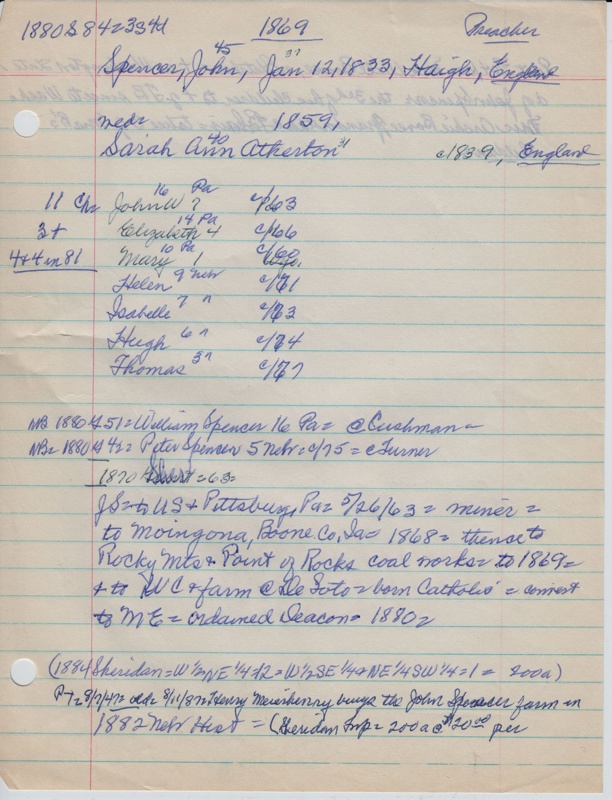 1880 S 84=334d 1869 Preacher
45 37
Spencer, John, Jan 12, 1833, Haigh, England
med= 1859,
40 31
Sarah Ann Atkerton c1839, England
11 Ch= John W 7 16 Pa c/63
3+ Elizabeth 4 14 Pa c/66
4+4 in 81 Mary 1 10 Pa c/60
Helen 9 Nebr c/71
Isabelle 7 " c/63
Hugh 6 " c/74
Thomas 3 " c/77
NB 1880 51= William Spencer 16 Pa= @ Cushman=
NB= 1880 42= Peter Spencer 5 Nebr= c/75= @ Turner
1870 =63=
JS= to US + Pittsburg, Pa= 5/26/63= miner=
to Moingona, Boone Co, Ia= 1868= thence to
Rocky Mts + Point of Rocks coal works= to 1869=
+ to WC + farm @ De Soto= born Catholic= convert
to ME= ordained Deacon= 1880=
(1884 Sheridan= W 1/2 NE 1/4=12= W 1/2 SE 1/4 + NE 1/4 SW 1/4=1= 200a)
Henry Meierhenry buys the John Spencer farm in
1882 Nebr Hist= (Sheridan Twp= 200a @ $20.00 per